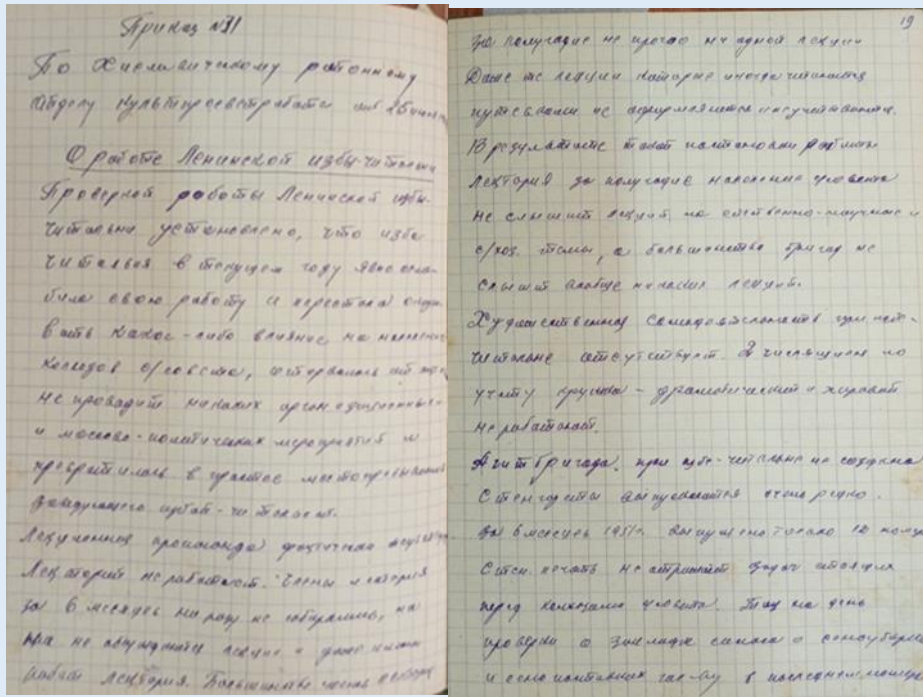 Приказ №31
По Хиславичскому районному
отделу культпросветработы от 25 июля
О работе Ленинской избы-читальни
Проверкой работы Ленинской избы-
читальни установлено, что изба
читальня в текущем году явно осла-
била свою работу и перестала оказы
вать какое-либо влияние на население
колхозов с/совета,
не проводит никаких организационных
и массово-политических мероприятий и
превратилась в простое местопребывание
заведующего избой-читальней.
Лекционная пропаганда фактически
Лекторий не работает. Члены лектория
за 6 месяцев ни разу не собирались, на
не обсуждаются лекции и
работы лектория. Большинство членов лектория
19
За полугодие не прочло ни одной лекции
Даже те лекции которые иногда читаются
не оформляются и не учитываются.
В результате такой постановки работы
лектория за полугодие население с/совета
не слышит лекций на естественно-научные и
с/хоз. темы, а большинство бригад не
слышит вообще никаких лекций.
Художественная самодеятельность при избе-
читальне отсутствует. 2 числящихся по
учету кружка - драматический и хоровой
не работают.
Агитбригада при избе-читальне не создана
Стенгазеты выпускаются очень редко.
За 6 месяцев 1951г. выпущено только 12
Стен. печать не отражает задач стоящих
перед колхозами с/совета. Так на день
проверки о закладке силоса о сеноуборке
и сенопоставках гос-ву в последнем номере